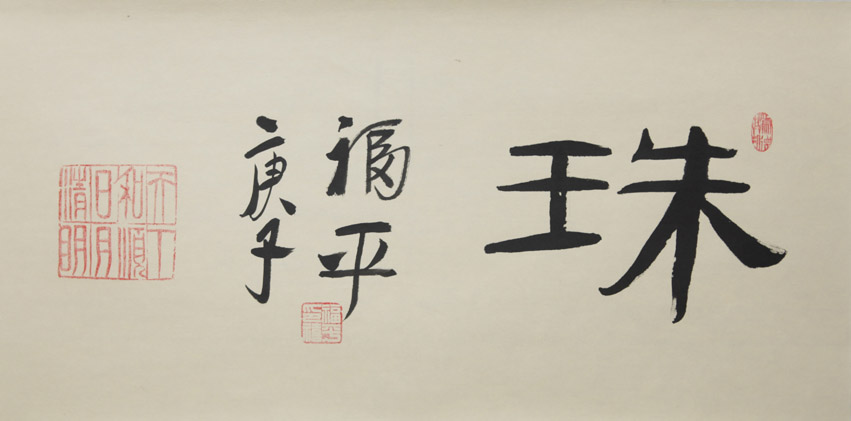 珠
福平
庚子
天下
和顺
日月
清明